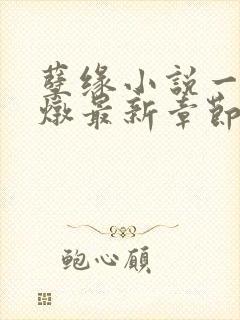 孽缘小說一
燉最新章節
鲍心顧